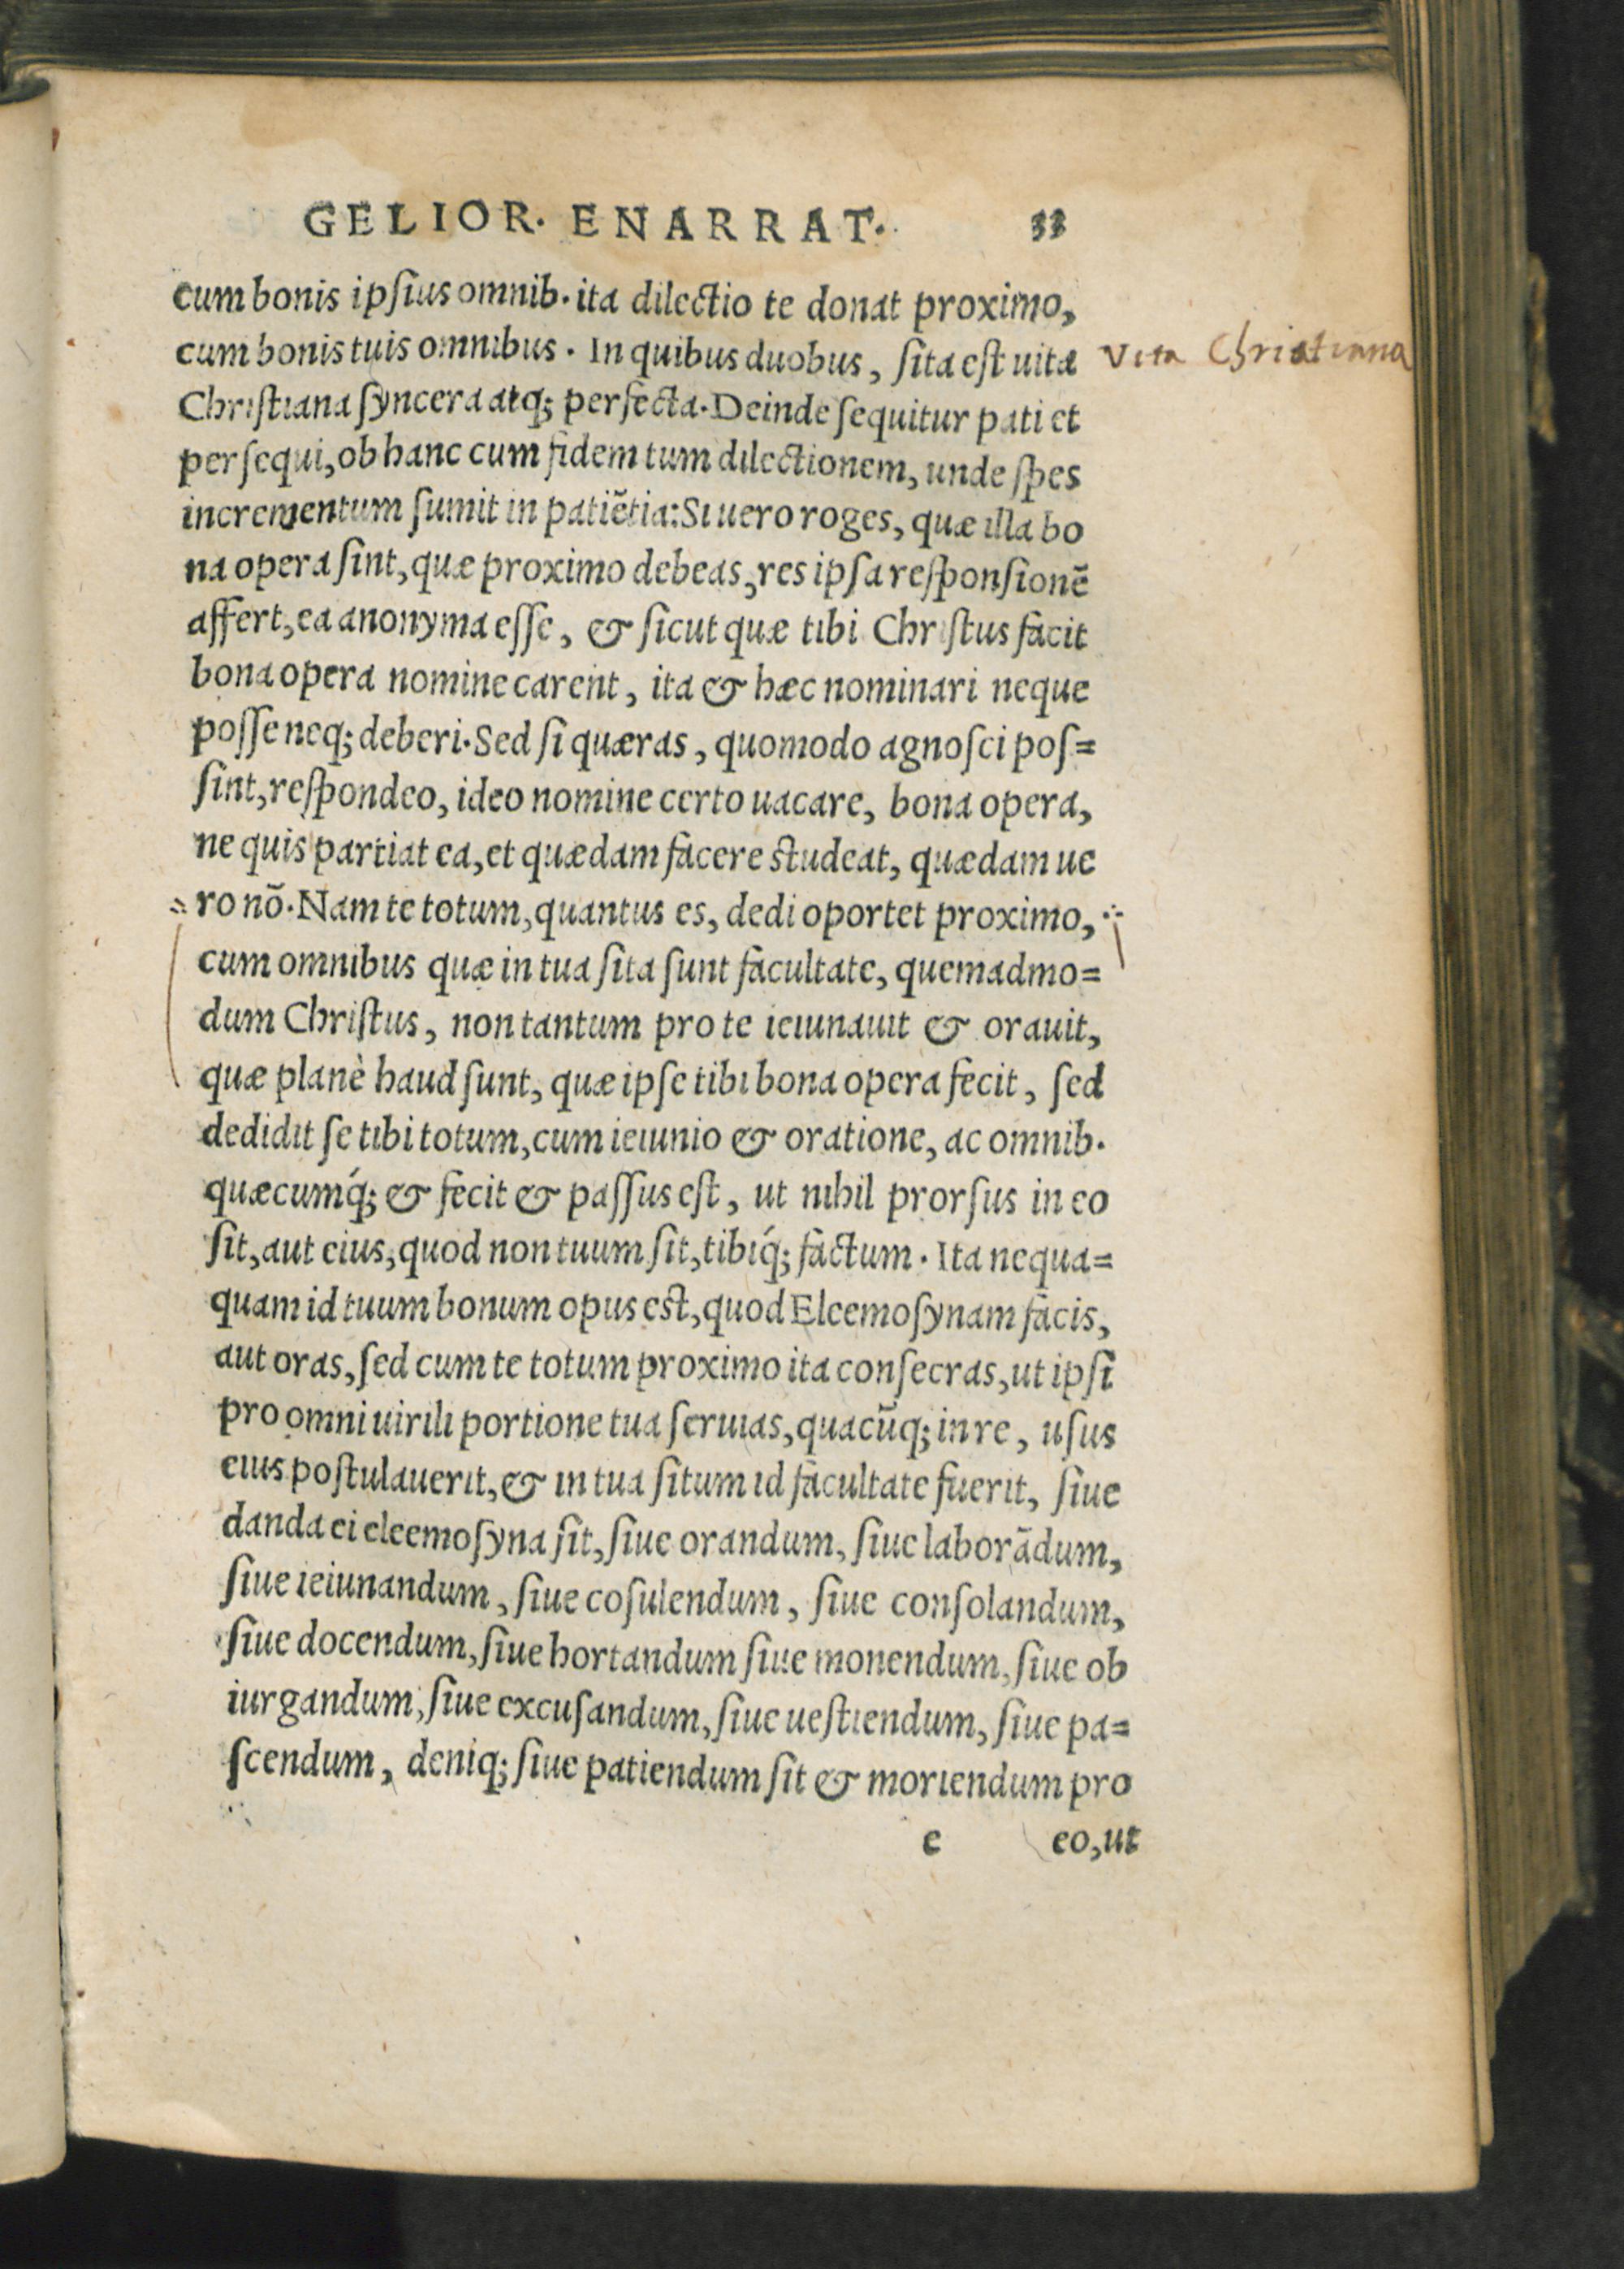 GELIOR. ENARRAT. 33
cum bonis ipſius omnib. ita dilectio te donat proximo,
cum bonis tuis omnibus. In quibus duobus, ſita eſt uita
Vita Chriſtiana
Chriſtiana ſyncera atq; perfecta. Deinde ſequitur pati et
perſequi, ob hanc cum fidem tum dilectionem, unde ſpes
incrementum ſumit in patiẽtia: Si uero roges, quæ illa bo
na opera ſint, quæ proximo debeas, res ipſa reſponſionẽ
affert, ea anonyma eſſe, & ſicut quæ tibi Chriſtus facit
bona opera nomine carent, ita & hæc nominari neque
poſſe neq; deberi. Sed ſi quæras, quomodo agnoſci poſ=
ſint, reſpondeo, ideo nomine certo uacare, bona opera,
ne quis partiat ea, et quædam facere ſtudeat, quædam ue
ro nõ. Nam te totum, quantus es, dedi oportet proximo,
cum omnibus quæ in tua ſita ſunt facultate, quemadmo=
dum Chriſtus, non tantum pro te ieiunauit & orauit,
quæ planè haud ſunt, quæ ipſe tibi bona opera fecit, ſed
dedidit ſe tibi totum, cum ieiunio & oratione, ac omnib.
quæcumq́; & fecit & paſſus eſt, ut nihil prorſus in eo
ſit, aut eius, quod non tuum ſit, tibiq́; factum. Ita nequa=
quam id tuum bonum opus eſt, quod Eleemoſynam facis,
aut oras, ſed cum te totum proximo ita conſecras, ut ipſi
pro omni uirili portione tua ſeruias, quacũq; in re, uſus
eius poſtulauerit, & in tua ſitum id facultate fuerit, ſiue
danda ei eleemoſyna ſit, ſiue orandum, ſiue laborãdum,
ſiue ieiunandum, ſiue coſulendum, ſiue conſolandum,
ſiue docendum, ſiue hortandum ſiue monendum, ſiue ob
iurgandum, ſiue excuſandum, ſiue ueſtiendum, ſiue pa=
ſcendum, deniq; ſiue patiendum ſit & moriendum pro
e eo, ut